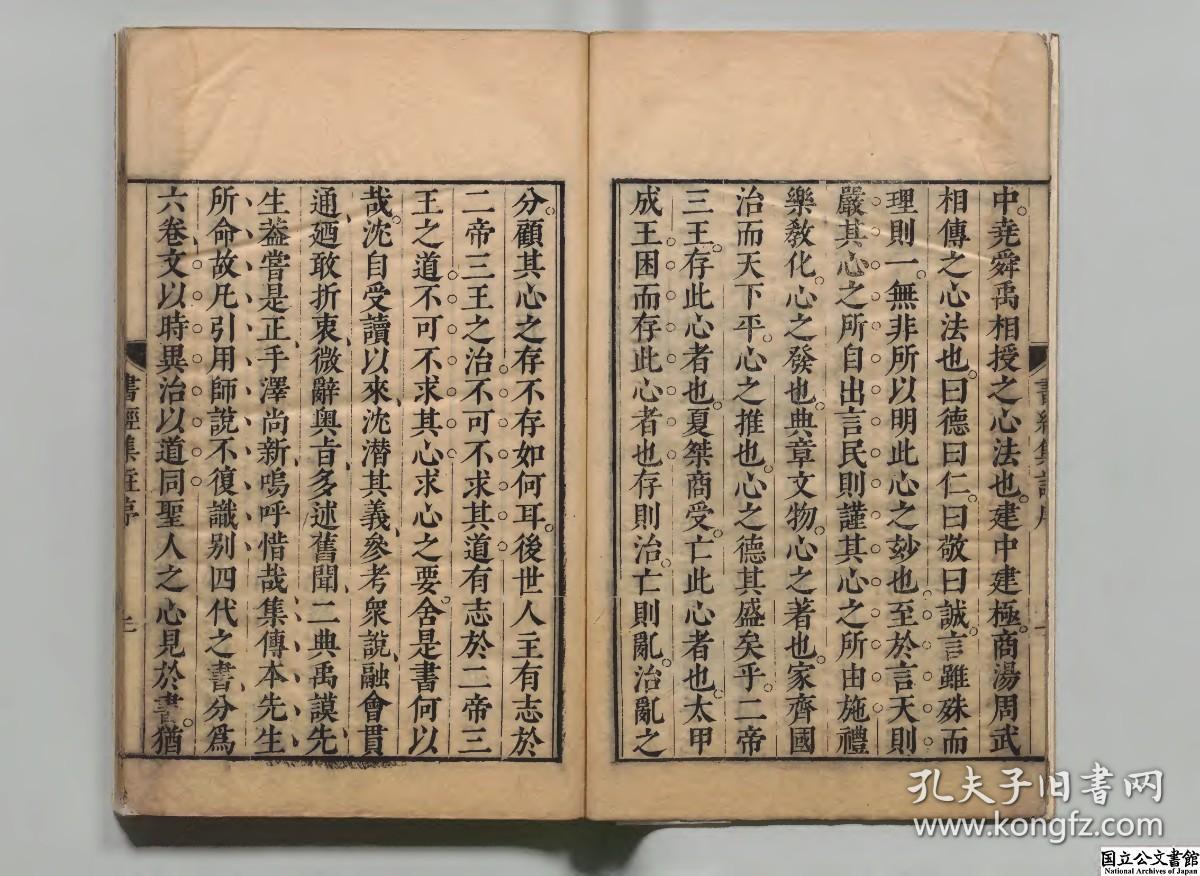 中。堯舜禹相授之心法也。建中建極。商湯周武
相傳之心法也。曰德曰仁。曰敬曰誠。言雖殊而
理則一。無非所以明此心之玅也。至於言天則
嚴其心之所自出。言民則謹其心之所由施。禮
樂敎化。心之發也。典章文物。心之著也。家齊國
治而天下平。心之推也。心之德其盛矣乎。二帝
三王。存此心者也。夏桀商受。亡此心者也。太甲
成王。困而存此心者也。存則治。亡則亂。治亂之
分。顧其心之存不存如何耳。後世人主有志於
二帝三王之治。不可不求其道。有志於二帝三
王之道。不可不求其心。求心之要。舍是書何以
哉。沈自受讀以來、沈潜其義、參考衆說、融會貫
通、廼敢折衷、微辭奧旨、多述舊聞、二典禹謨、先
生葢嘗是正、手澤尚新、嗚呼惜哉、集傳本先生
所命、故凢引用師說、不復識别、四代之書、分爲
六卷、文以時異、治以道同、聖人之心見於書。猶
書經集註序
書經集註序
孔夫子旧书网
www.kongfz.com
国立公文書館
National Archives of Japan